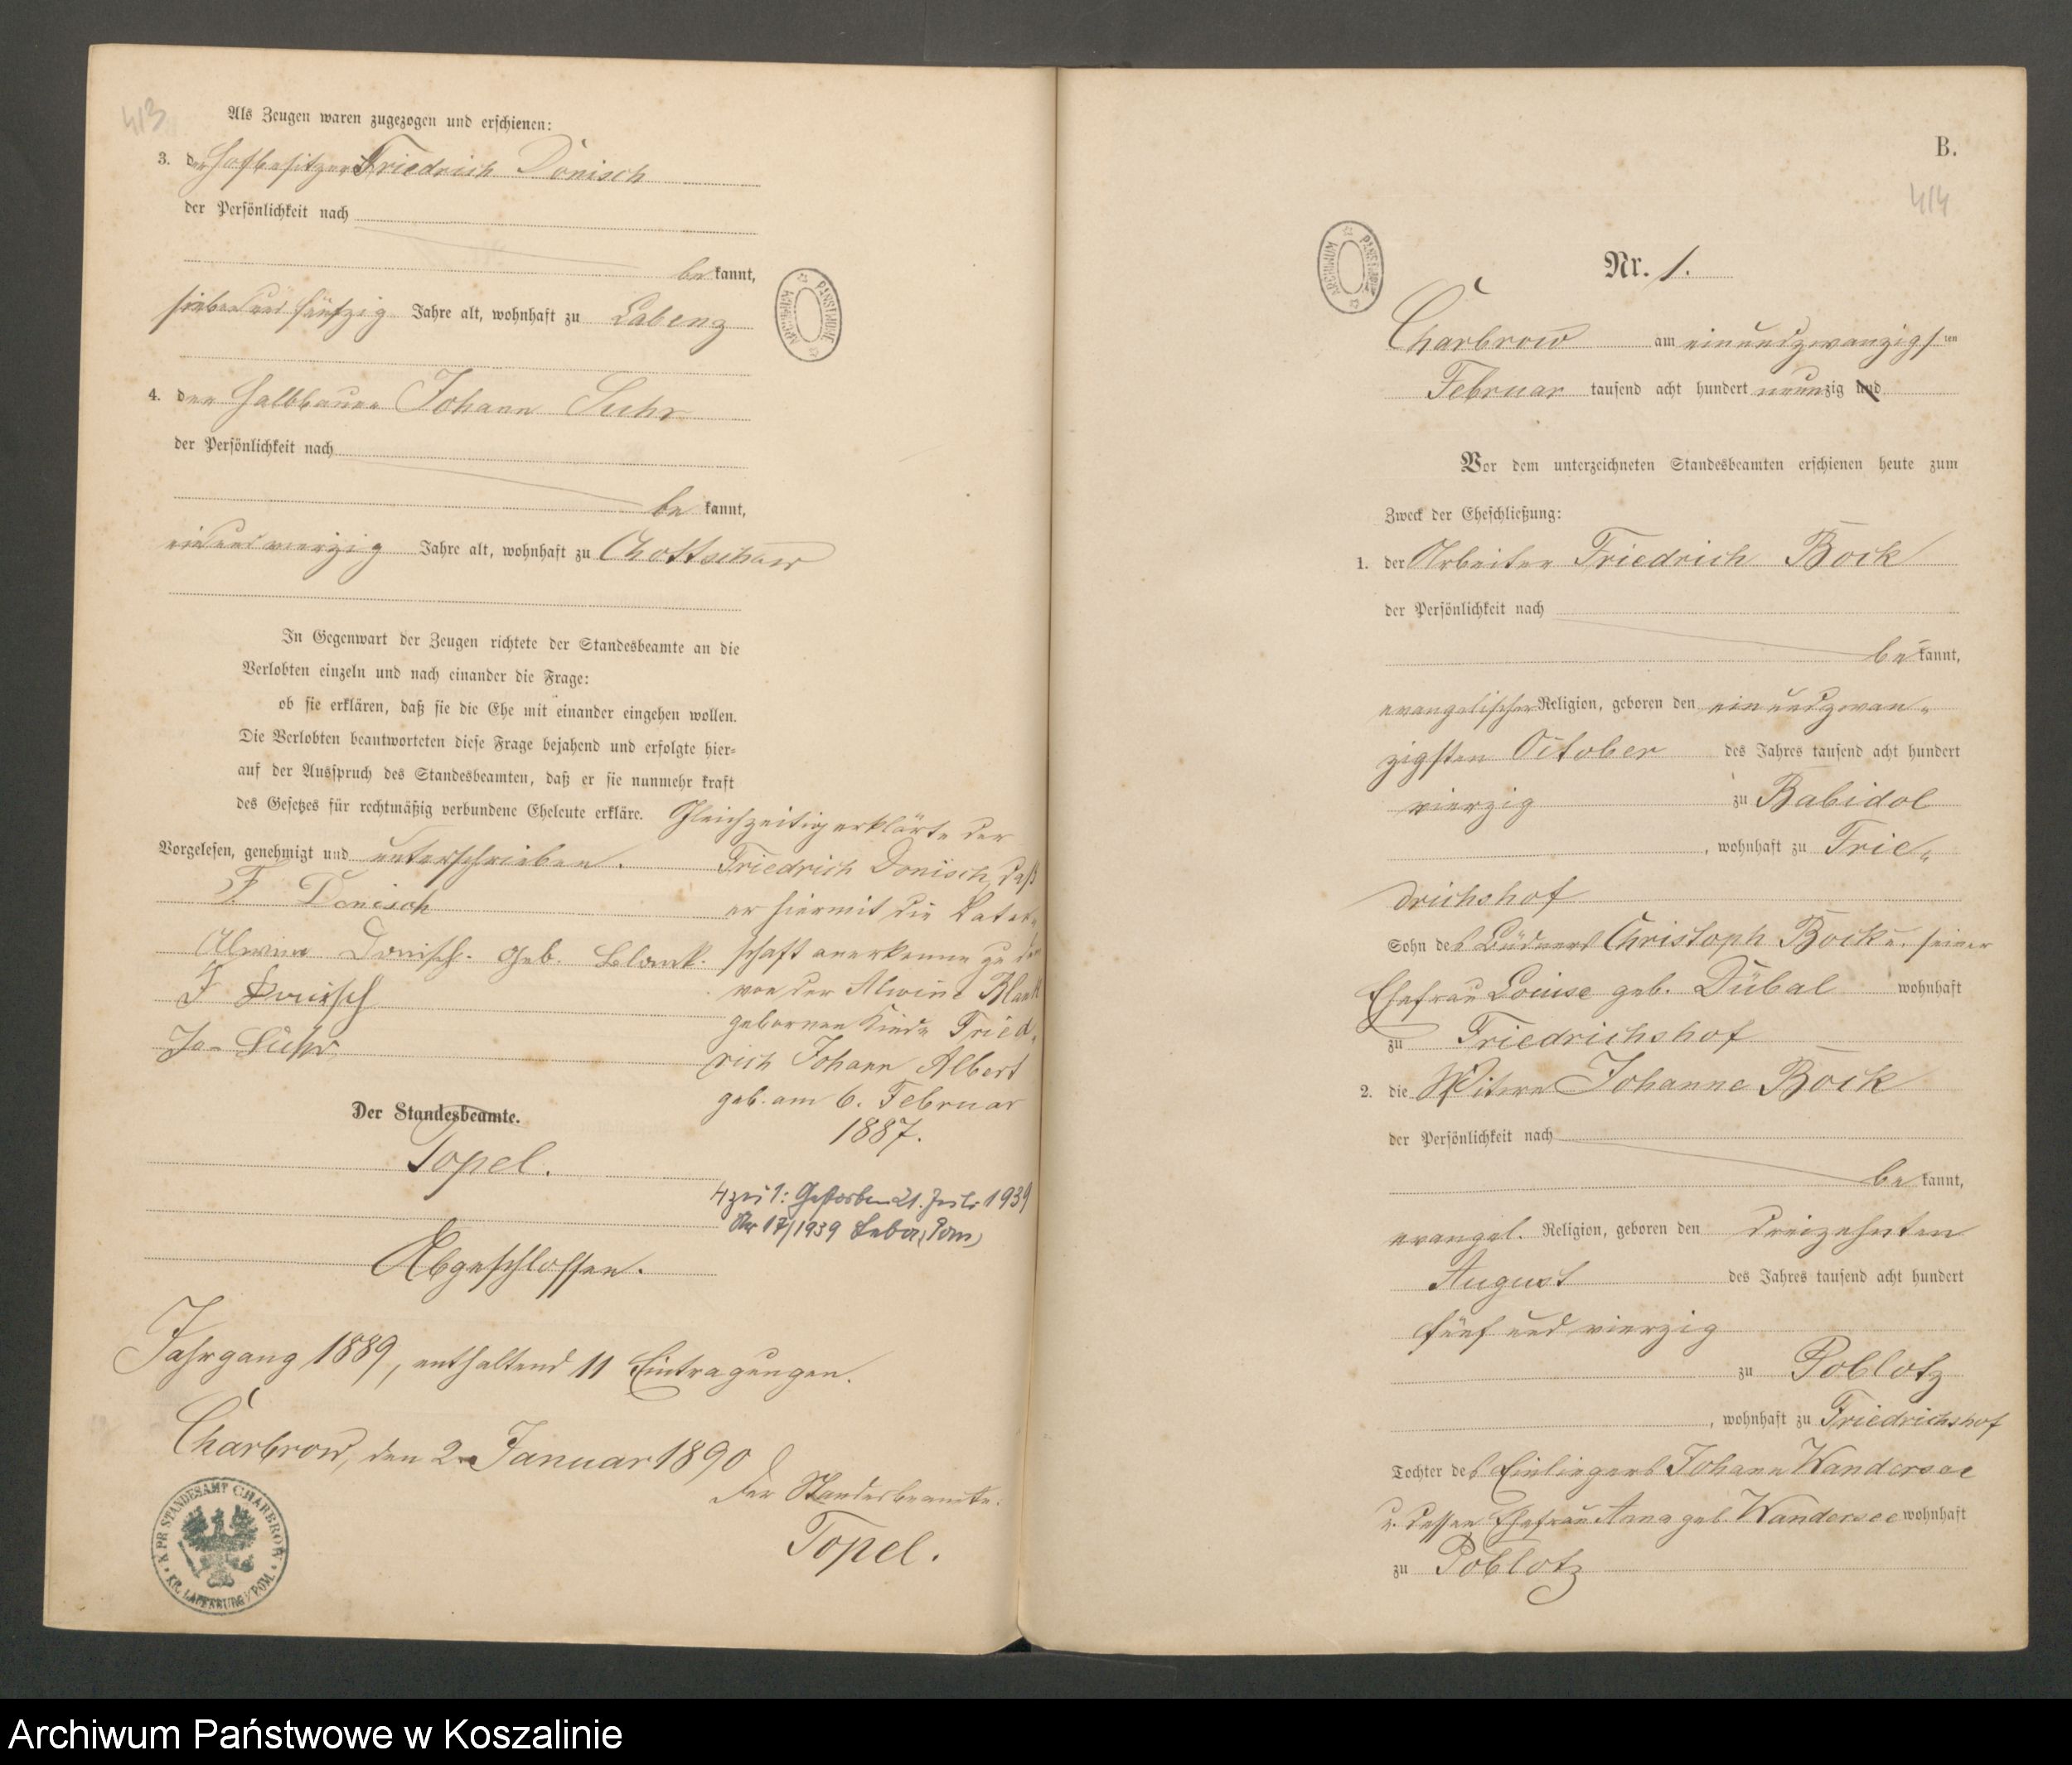 413
Als Zeugen waren zugezogen und erschienen:
3. der Hofbesitzer Friedrich Donisch
der Persönlichkeit nach
be kannt,
siebenundfünfzig Jahre alt, wohnhaft zu Labenz
4. der Halbbauer Johann Suhr
der Persönlichkeit nach
be kannt,
einundvierzig Jahre alt, wohnhaft zu Chottschow
In Gegenwart der Zeugen richtete der Standesbeamte an die
Verlobten einzeln und nach einander die Frage:
ob sie erklären, daß sie die Ehe mit einander eingehen wollen.
Die Verlobten beantworteten diese Frage bejahend und erfolgte hier=
auf der Ausspruch des Standesbeamten, daß er sie nunmehr kraft
des Gesetzes für rechtmäßig verbundene Eheleute erkläre.
Vorgelesen, genehmigt und unterschrieben.
F. Donisch
Alwine Donisch. geb. Blank.
F Donisch
Jo- Suhr
Der Standesbeamte.
Topel.
Gleichzeitig erklärte der
Friedrich Donisch, daß
er hiermit die Vater=
schaft anerkenne zu dem
von der Alwine Blank
geborenen Kinde Fried=
rich Johann Albert
geb. am 6. Februar
1887.
zu 1: Gestorben 21. 1939
Nr 17/1939 Leba, Pom)
Abgeschlossen.
Jahrgang 1889, enthaltend 11 Eintragungen.
Charbrow, den 2. Januar 1890
Der Standesbeamte.
Topel.
K. PR. STANDESAMT CHARBROW
KR. LAUENBURG I/POM.
ARCHIWUM PAŃSTWOWE
B.
414
ARCHIWUM PAŃSTWOWE
Nr. 1.
Charbrow am einundzwanzigsten
Februar tausend acht hundert neunzig und
Vor dem unterzeichneten Standesbeamten erschienen heute zum
Zweck der Eheschließung:
1. der Arbeiter Friedrich Bock
der Persönlichkeit nach
be kannt,
evangelischer Religion, geboren den einundzwan=
zigsten October des Jahres tausend acht hundert
vierzig zu Babidol
, wohnhaft zu Frie=
drichshof
Sohn des Büdners Christoph Bock u. seiner
Ehefrau Louise geb. Dübal wohnhaft
zu Friedrichshof
2. die Witwe Johanne Bock
der Persönlichkeit nach
be kannt,
evangel. Religion, geboren den dreizehnten
August des Jahres tausend acht hundert
fünf und vierzig
zu Poblotz
, wohnhaft zu Friedrichshof
Tochter des Einliegers Johann Wandersee
u. dessen Ehefrau Anna geb. Wandersee wohnhaft
zu Poblotz
Archiwum Państwowe w Koszalinie